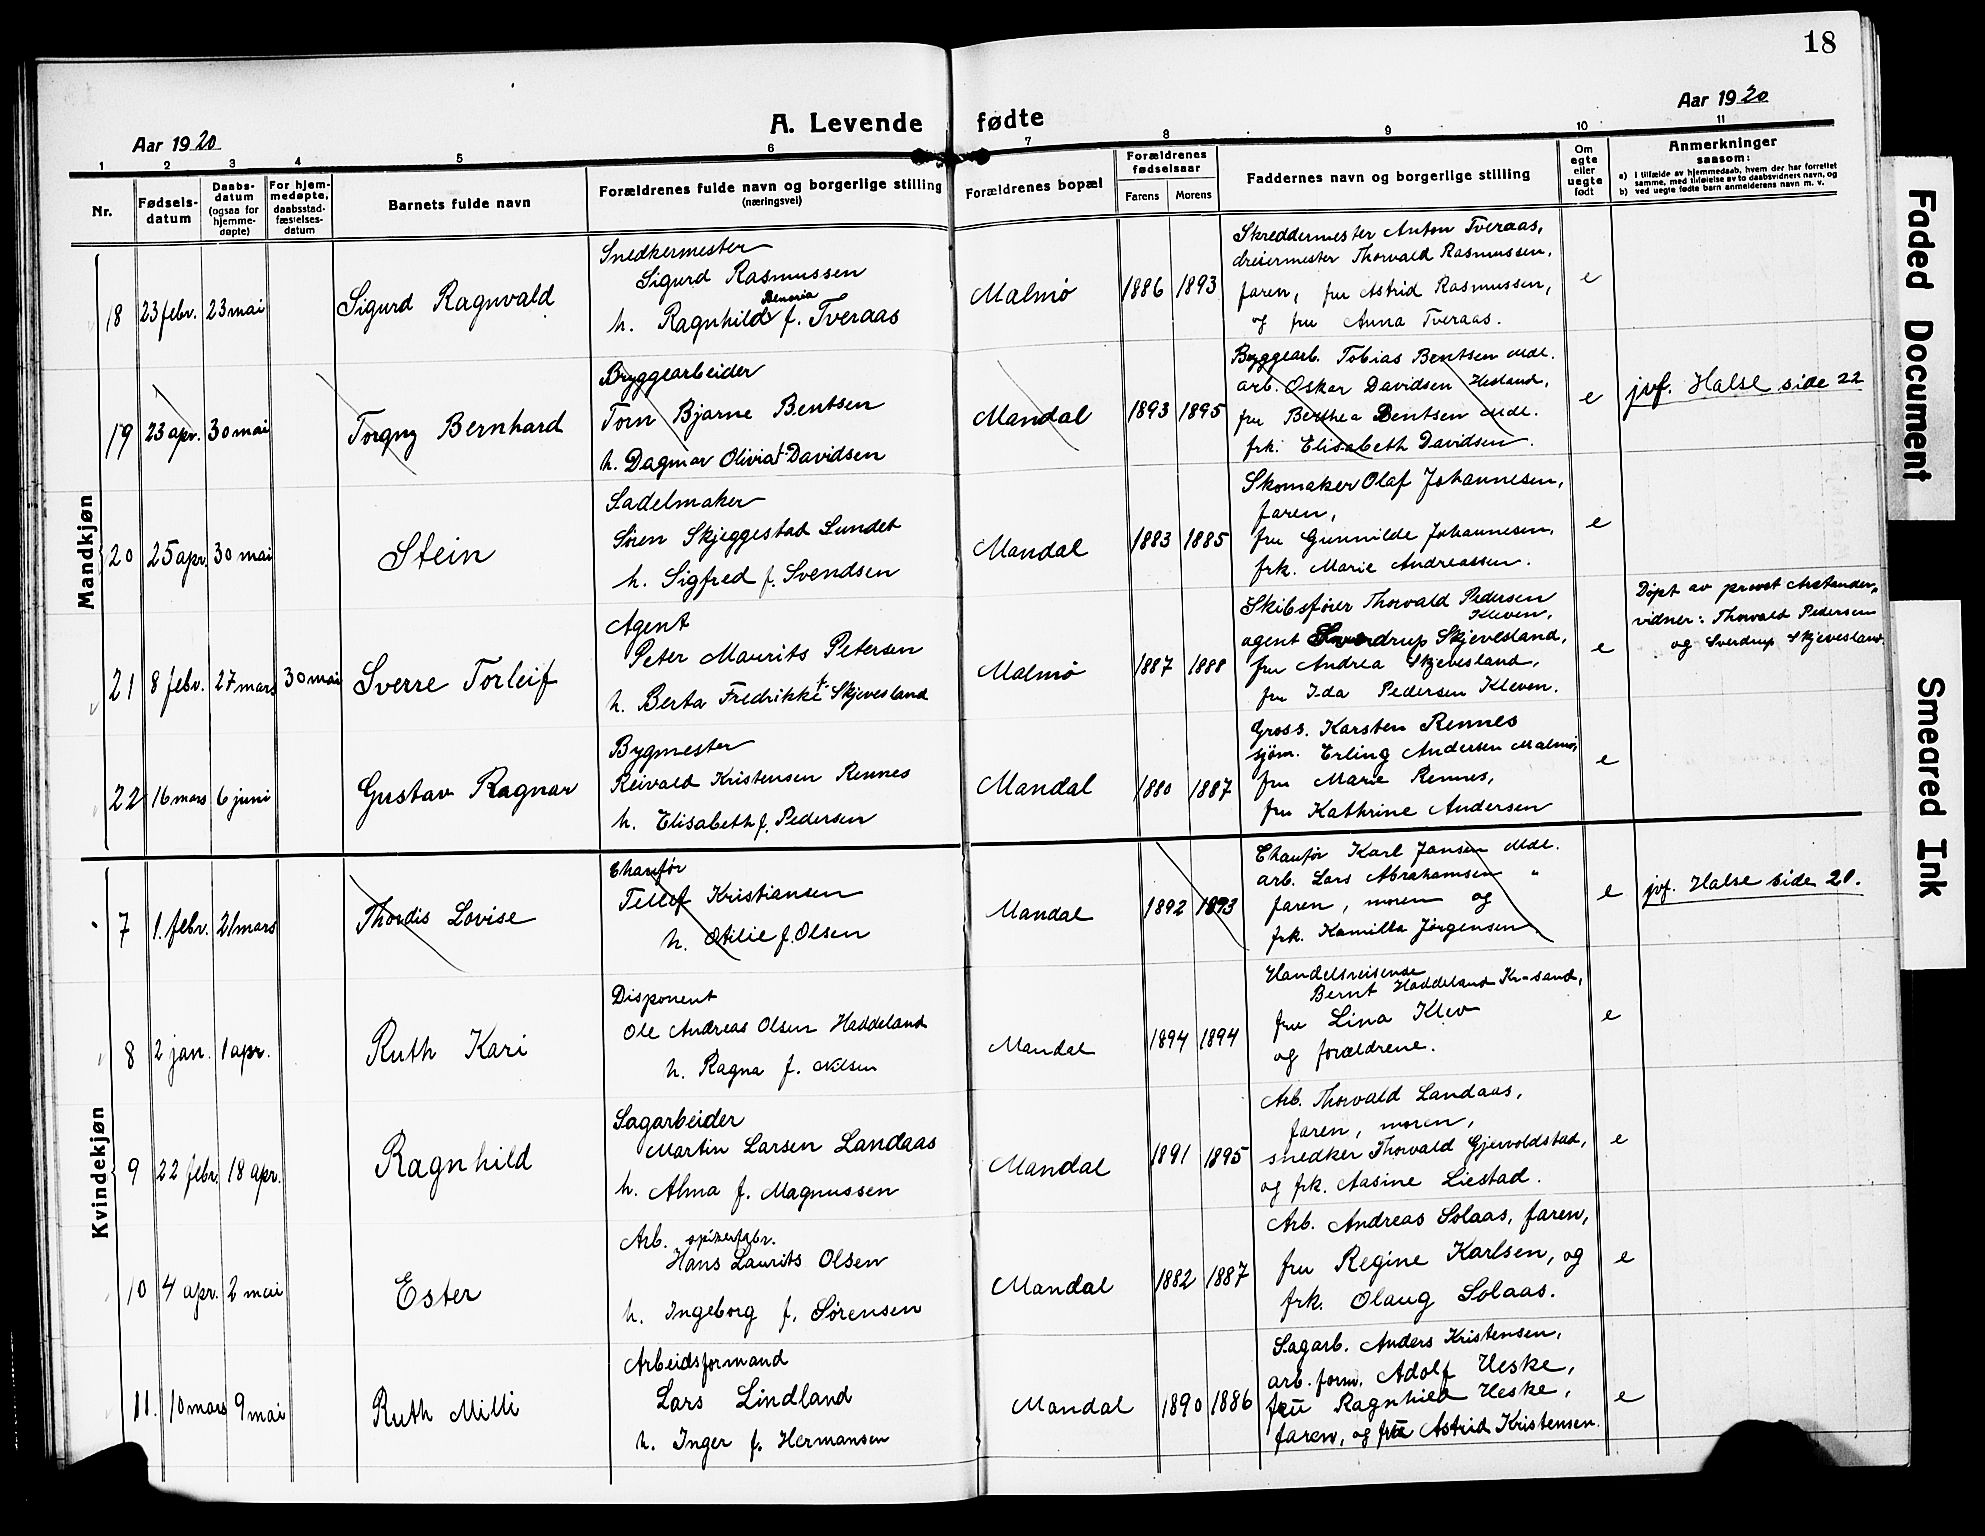 18
Aar 1920
A. Levende fødte
Aar 1920
1 2 3 4 5 6 7 8 9 10 11
Nr.
Fødsels-
datum
Daabs-
datum
(ogsaa for
hjemme-
døpte)
For hjem-
medøpte,
daabsstad-
fæstelses-
datum
Barnets fulde navn
Forældrenes fulde navn og borgerlige stilling
(næringsvei)
Forældrenes bopæl
Forældrenes
fødselsaar
Farens Morens
Faddernes navn og borgerlige stilling
Om
egte
eller
uegte
født
Anmerkninger
saasom:
a) I tilfælde av hjemmedaab, hvem der har forrettet
samme, med tilføielse av to daabsvidners navn, og
b) ved uegte fødte barn anmelderens navn m. v.
Mandkjøn
18 23 febr. 23 mai
Sigurd Ragnvald
Snedkermester
Sigurd Rasmussen
h. Ragnhild f. Tveraas
Malmø
1886 1893
Skreddermester Anton Tveraas,
dreiermester Thorvald Rasmussen,
faren, fru Astrid Rasmussen,
og fru Anna Tveraas.
e
19 23 apr. 30 mai
Torgny Bernhard
Bryggearbeider
Tom Bjarne Bentsen
h. Dagmar Olivia f. Davidsen
Mandal
1893 1895
Byggearb. Tobias Bentsen Mdl.
arb. Oskar Davidsen Hesland,
fru Berthea Bentsen Mdl.
frk. Elisabeth Davidsen.
e
jvf. Halse side 22
20 25 apr. 30 mai
Stein
Sadelmaker
Søren Skjeggestad Lundet
h. Sigfred f. Svendsen
Mandal
1883 1885
Skomaker Olaf Johannesen,
faren,
fru Gunnilde Johannesen,
frk. Marie Andreassen.
e
21 8 febr. 27 mars 30 mai
Sverre Torleif
Agent
Peter Maurits Petersen
h. Berta Fredrikke f. Skjevesland
Malmø
1887 1888
Skibsfører Thorvald Pedersen
Kleven,
agent Sverdrup Skjevesland,
fru Andrea Skjevesland,
fru Ida Pedersen Kleven.
e
Døpt av provst
vidner: Thorvald Pedersen
og Sverdrup Skjevesland.
22 16 mars 6 juni
Gustav Ragnar
Bygmester
Reivald Kristensen Rennes
h. Elisabeth f. Pedersen
Mandal
1880 1887
Gross. Karsten Rennes
sjøm. Erling Andersen Malmø,
fru Marie Rennes,
fru Kathrine Andersen
e
Kvindekjøn
7 1. febr. 21 mars
Thordis Lovise
Chauför
Tellef Kristiansen
h. Otilie f. Olsen
Mandal
1892 1893
Chauför Karl Jansen Mdl.
arb. Lars Abrahamsen "
faren, moren og
frk. Kamilla Jørgensen.
e
jvf. Halse side 20.
8 2 jan. 1 apr.
Ruth Kari
Disponent
Ole Andreas Olsen Haddeland
h. Ragna f. Nilsen
Mandal
1894 1894
Handelsreisende
Bernt Haddeland Kr-sand,
fru Lina Klev
og forældrene.
e
9 22 febr. 18 apr.
Ragnhild
Sagarbeider
Martin Larsen Landaas
h. Alma f. Magnussen
Mandal
1891 1895
Arb. Thorvald Landaas,
faren, moren,
snedker Thorvald Gjervoldstad,
og frk. Aasine Liestad.
e
10 4 apr. 2 mai
Ester
Arb. spikerfabr.
Hans Laurits Olsen
h. Ingeborg f. Sørensen
Mandal
1882 1887
Arb. Andreas Solaas, faren,
fru Regine Karlsen, og
frk. Olaug Solaas.
e
11. 10 mars 9 mai
Ruth Milli
Arbeidsformand
Lars Lindland
h. Inger f. Hermansen
Mandal
1890 1886
Sagarb. Anders Kristensen,
arb. form. Adolf Heske,
fru Ragnhild Heske,
faren, og fru Astrid Kristensen.
e
Faded Document
Smeared Ink